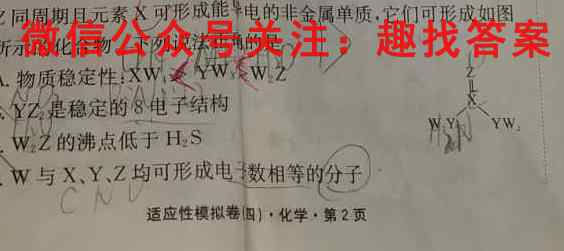 Z同周期且元素X可形成能导电的非金属单质,它们可形成如图
所示的化合物。下列说法正确的是
微信公众号关注:趣找答案
A. 物质稳定性:XW₄ YW₃ W₂Z
YZ₂是稳定的8电子结构
W₂Z的沸点低于H₂S
W与X、Y、Z均可形成电子数相等的分子
Z
X
W₂Y YW₂
C N O
适应性模拟卷(四)·化学·第2页